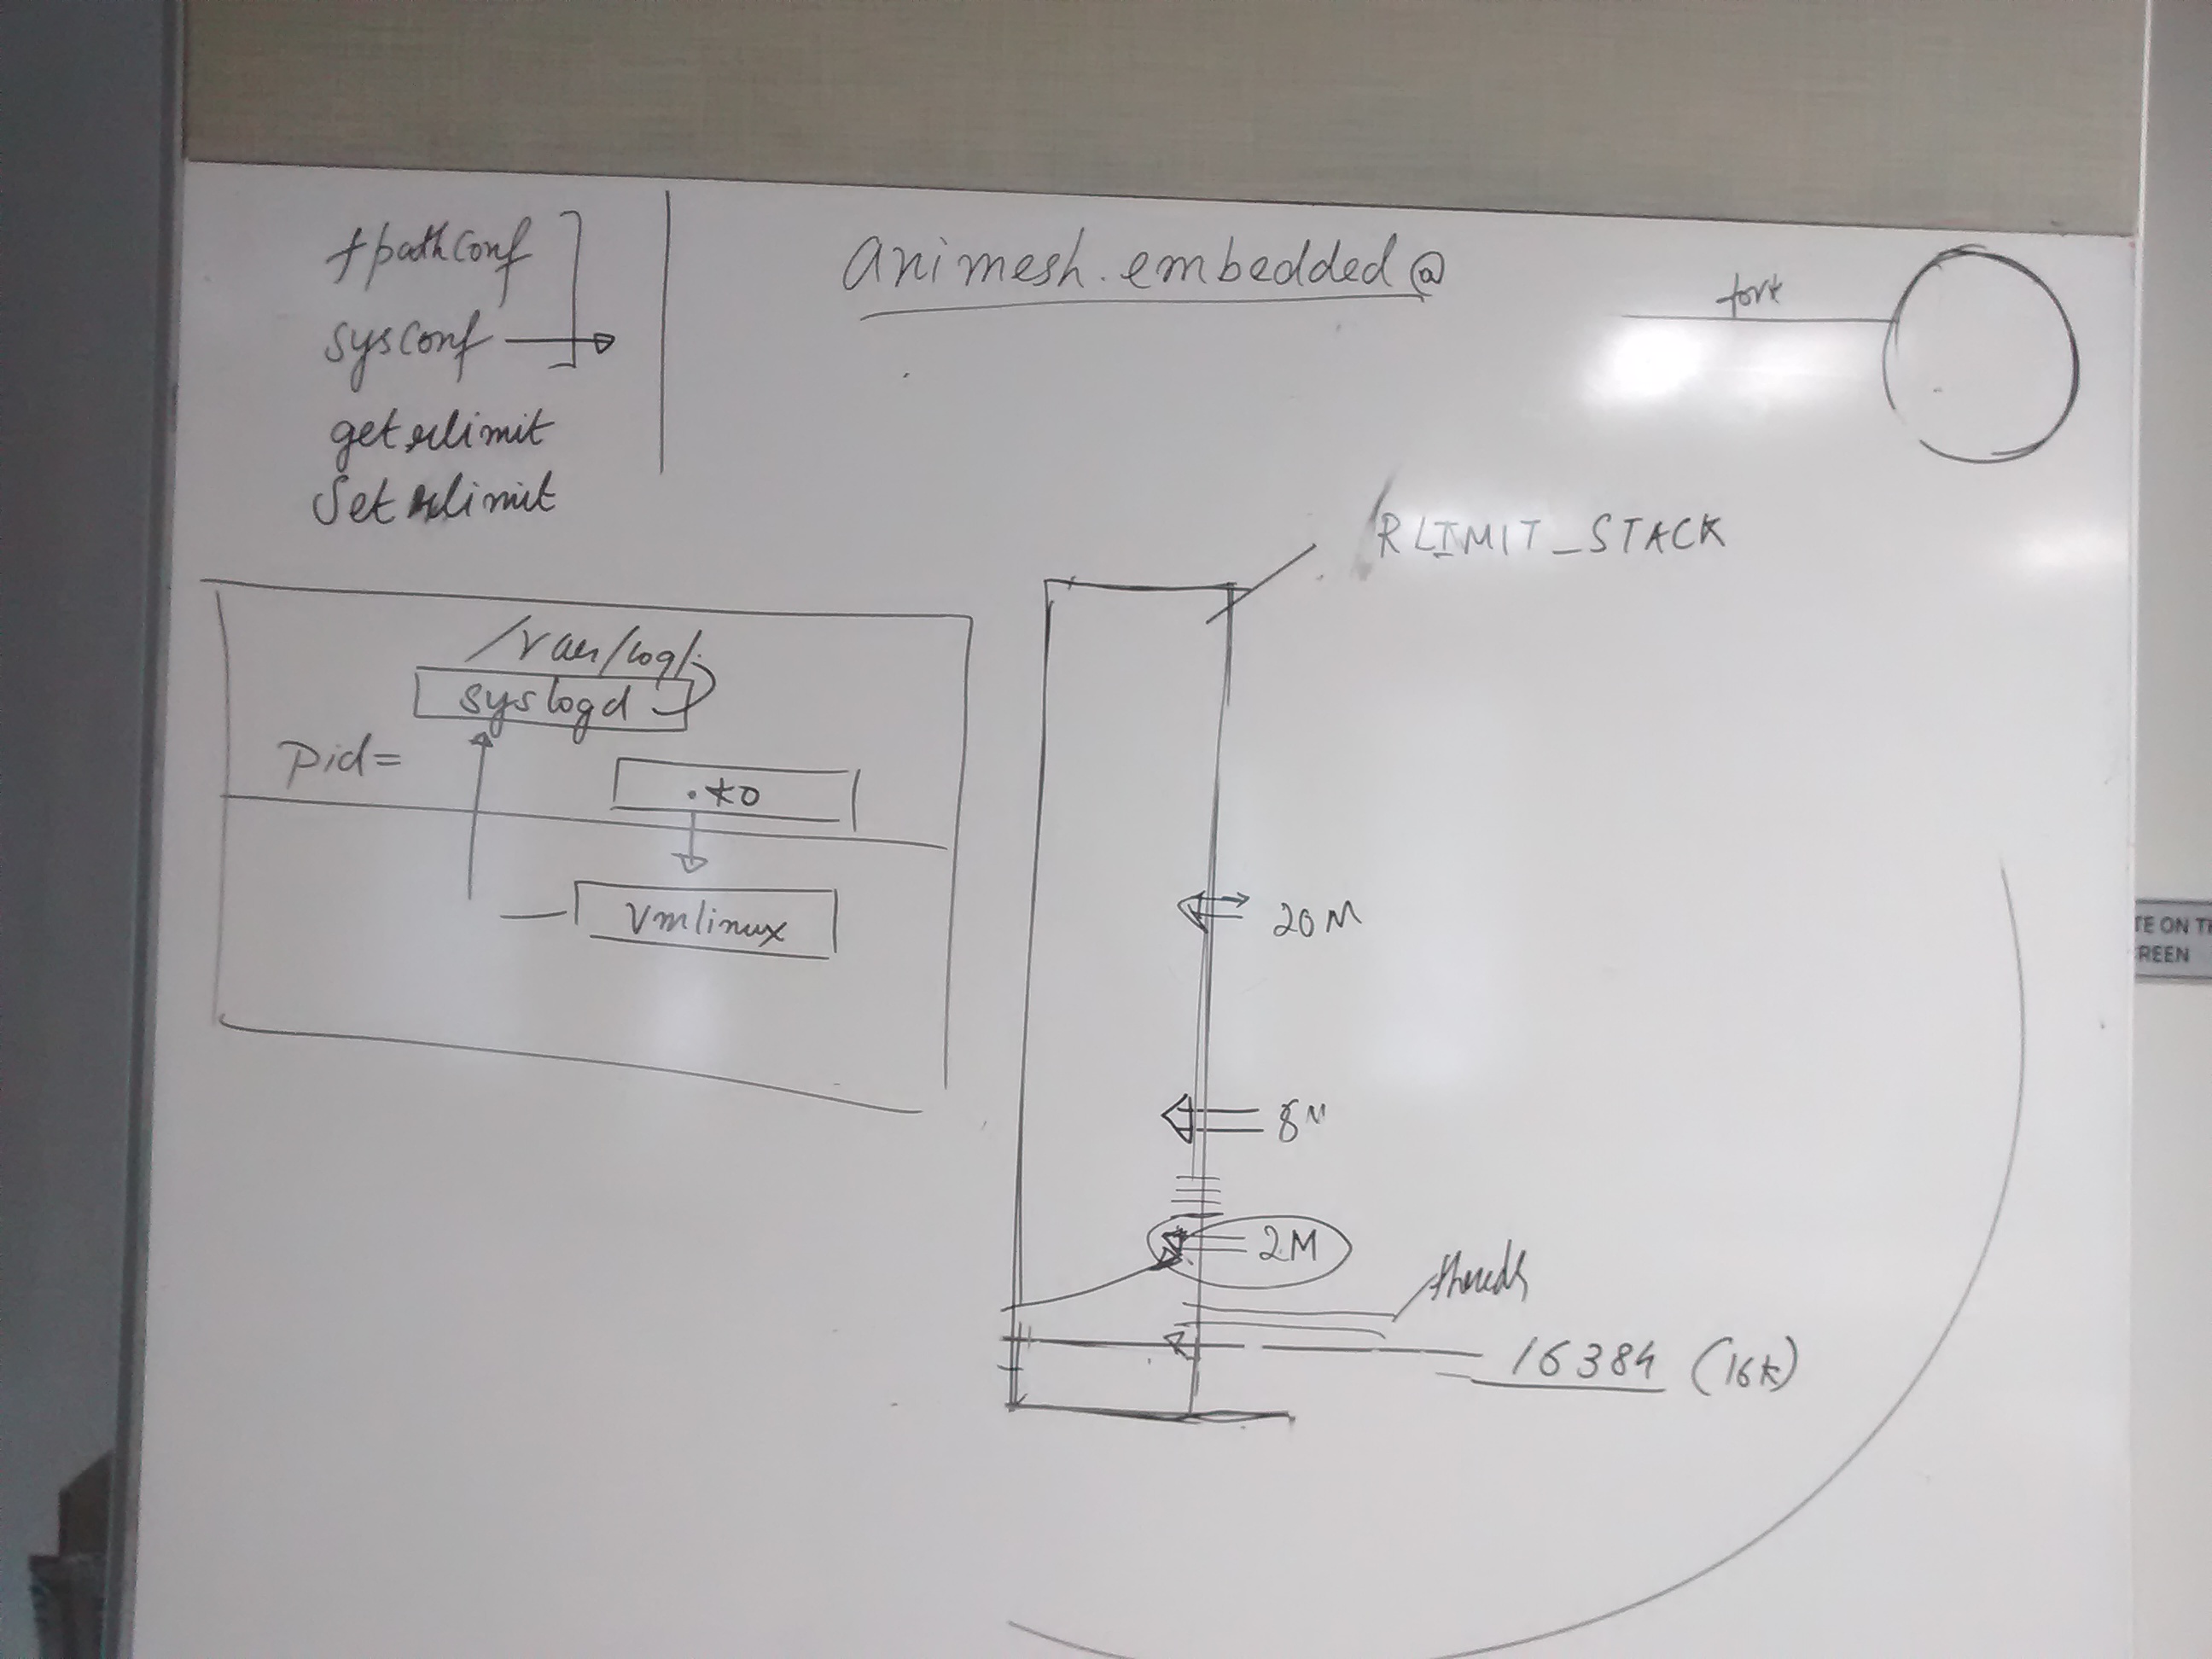 fpathconf
sysconf
getrlimit
Setrlimit
animesh.embedded@
fork
RLIMIT_STACK
/var/log/
syslogd
pid=
.ko
vmlinux
20M
8M
2M
threads
16384 (16k)
TE ON TH
REEN